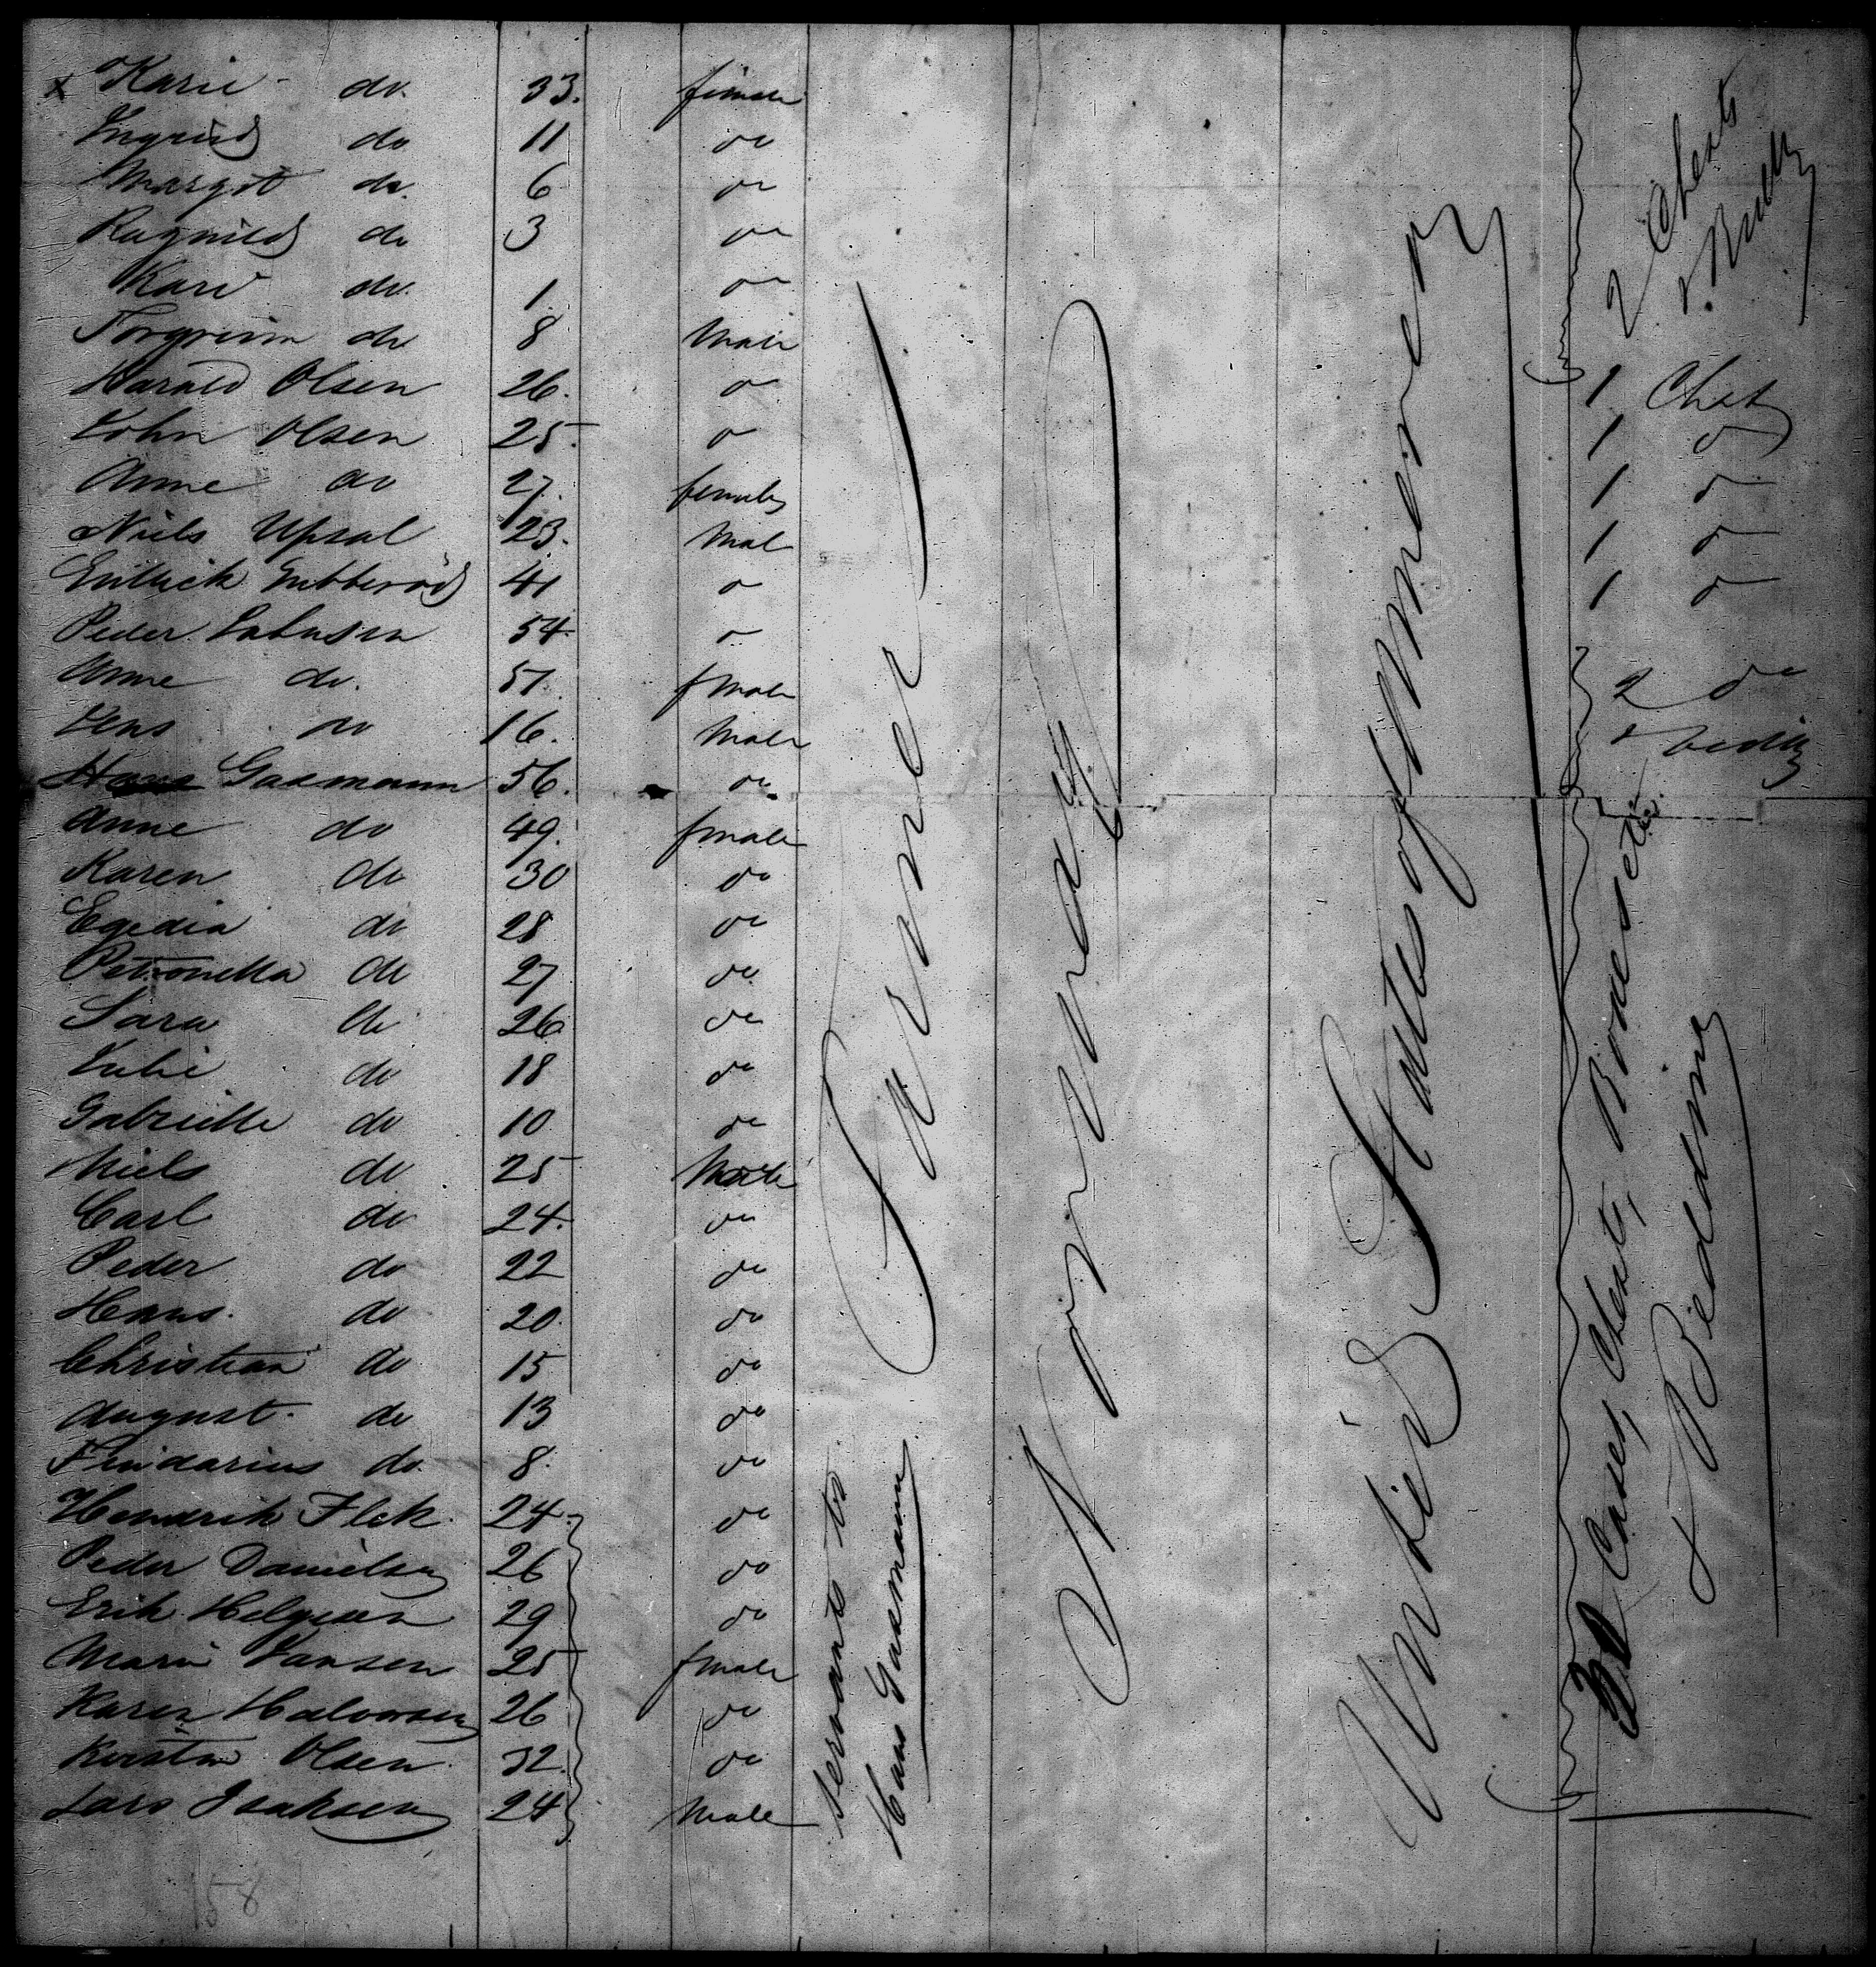 x Karie do. 33. female
Ingrid do 11 do
Margit do. 6 do
Ragnild do 3 do
Kari do. 1 do
Torgrim do 8 Male
Harald Olsen 26. do 1 Chest
John Olsen 25. do 1 do
Anne do 27. female 1 do
Niels Upsal 23. Mal 1 do
41 do 1 do
Peder 54 do
Anne do. 57. fmale 2 do
Jens do 16. Male
Hans Gasmann 56. do
Anne do 49. fmale
Karen do 30 do
Egedia do 28 do
Petronella do 27 do
Sara do 26 do
Julie do 18 do
Gabrielle do 10 do
Niels do 25 Male
Carl do 24. do
Peder do 22 do
Hans. do 20. do
Christian do 15 do
August. do 13 do
do. 8. do
Hendrik Flek 24 do
Peder Danielsen 26 do
Erik Helgesen 29 do
Marie Jansen 25 fmale
Karen Halvorsen 26 do
Kirstin Olsen 32. do
Lars Isaksen 24 Male
Servants to
Hans Gasmann
Farmer
Norway
United States of
2 Chests
30 Cases, Chests,
& Bedding
158